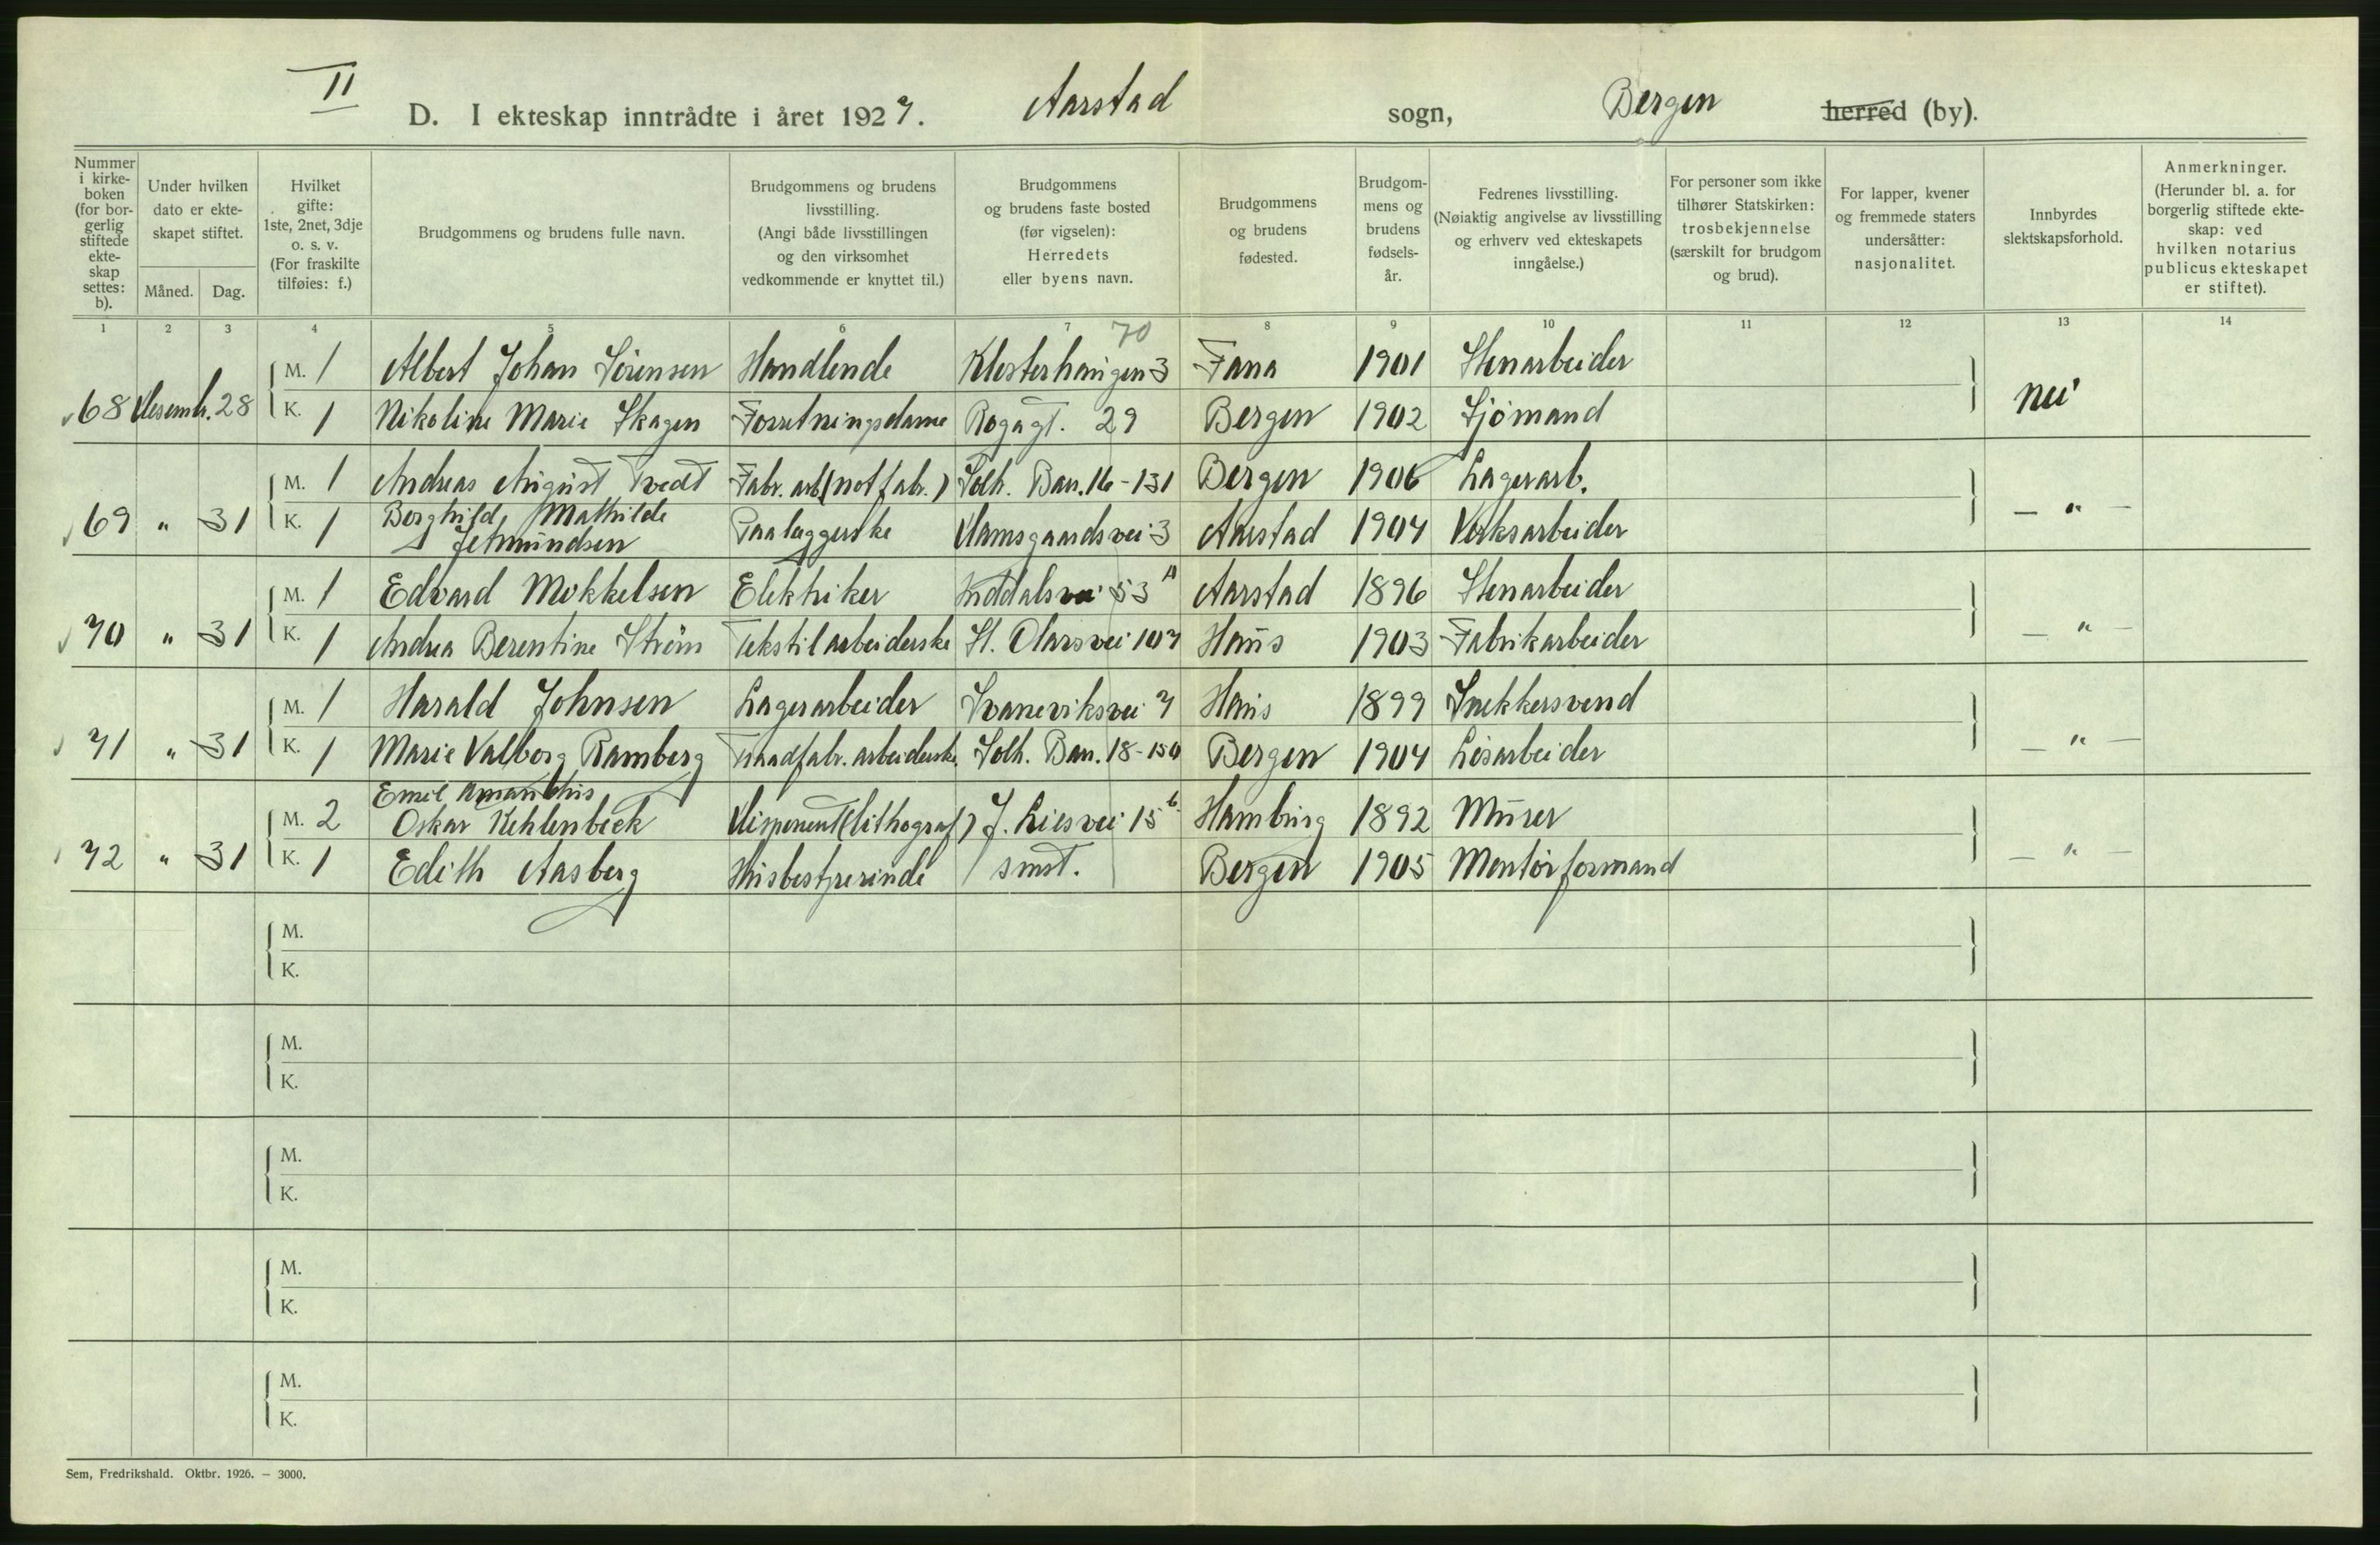 II
D. I ekteskap inntrådte i året 1927. Aarstad sogn, Bergen herred (by).
Nummer i kirke-boken (for bor-gerlig stiftede ekte-skap settes: b).
Under hvilken dato er ekte-skapet stiftet.
Måned. Dag.
Hvilket gifte: 1ste, 2net, 3dje o. s. v. (For fraskilte tilføies: f.)
Brudgommens og brudens fulle navn.
Brudgommens og brudens livsstilling. (Angi både livsstillingen og den virksomhet vedkommende er knyttet til.)
Brudgommens og brudens faste bosted (før vigselen): Herredets eller byens navn.
Brudgommens og brudens fødested.
Brudgom-mens og brudens fødsels-år.
Fedrenes livsstilling. (Nøiaktig angivelse av livsstilling og erhverv ved ekteskapets inngåelse.)
For personer som ikke tilhører Statskirken: trosbekjennelse (særskilt for brudgom og brud).
For lapper, kvener og fremmede staters undersåtter: nasjonalitet.
Innbyrdes slektskapsforhold.
Anmerkninger. (Herunder bl. a. for borgerlig stiftede ekte-skap: ved hvilken notarius publicus ekteskapet er stiftet).
1 2 3 4 5 6 7 8 9 10 11 12 13 14
70
M. 1 Albert Johan Sörensen Handlende Klosterhaugen 3 Fana 1901 Stenarbeider
68 Desemb. 28 K. 1 Nikoline Marie Skagen Forretningsdame 29 Bergen 1902 Sjömand nei
M. 1 Andreas August Tvedt Fabr. arb (notfabr.) Solh. Bar. 16 - 131 Bergen 1906 Lagerarb.
69 " 31 K. 1 Berghild Mathilde Jetmundsen Paaleggerske Damsgaardsvei 3 Aarstad 1904 Verksarbeider — " —
M. 1 Edvard Mokkelsen Elektriker 53 A Aarstad 1896 Stenarbeider
70 " 31 K. 1 Andrea Berentine Ström Tekstilarbeiderske St. Olavs vei 107 Haus 1903 Fabrikarbeider — " —
M. 1 Harald Johnsen Lagerarbeider Svaneviksvei 7 Haus 1899 Snekkersvend
71 " 31 K. 1 Marie Valborg Ramberg Traadfabr. arbeiderske Solh. Bar. 18 - 150 Bergen 1904 Lösarbeider — " —
M. 2 Emil Amanthus Oskar Kehlenbeck Disponent (lithograf) J. Lies vei 15 b. Hamburg 1892 Murer
72 " 31 K. 1 Edith Aasberg Husbestyrerinde smst. Bergen 1905 Montörformand — " —
M.
K.
M.
K.
M.
K.
M.
K.
M.
K.
Sem, Fredrikshald. Oktbr. 1926. — 3000.